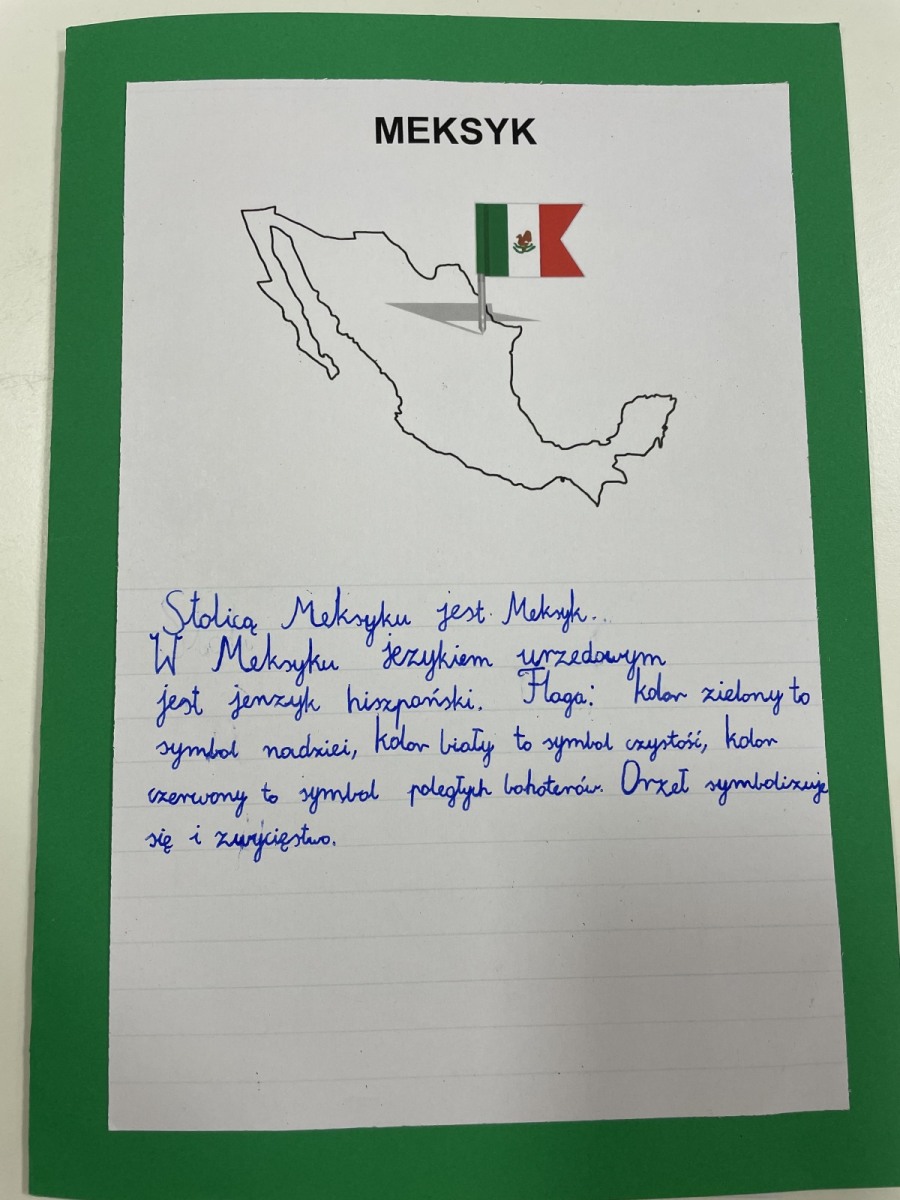 MEKSYK
Stolicą Meksyku jest Meksyk..
W Meksyku jezykiem urzedowym
jest jenzyk hiszpański. Flaga: kolor zielony to
symbol nadziei, kolor biały to symbol czystość, kolor
czerwony to symbol poległych bohoterów. Orzeł symbolizuje
się i zwycięstwo.